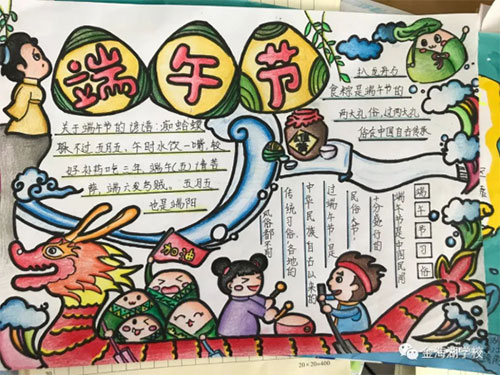 端午节
关于端午节的谚语:癞蛤蟆
躲不过五月五。午时水饮一嘴,较
好补药吃三年。端午(五)请菩
萨,端六发乌贼。五月五
也是端阳
扒龙舟与
食粽是端午节的
两大礼俗,这两大礼
俗在中国自古传承
端午节习俗
端午节是中国民间
十分盛行的
民俗大节,
过端午节,是
中华民族自古以来的
传统习俗,各地的
风俗都不同
加油
20×20=400